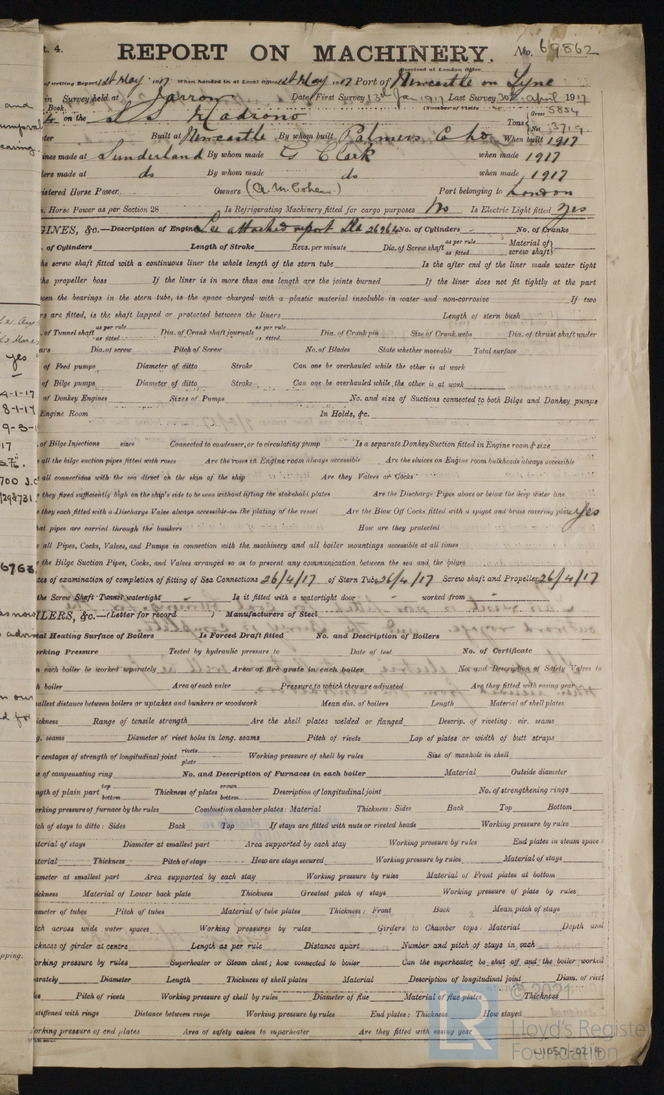 t. 4.
REPORT ON MACHINERY.
No. 69862
Received at London Office
of writing Report 1st May 1917 When handed in at Local Office 1st May 1917 Port of Newcastle on Tyne
in Survey held at Jarrow Date, First Survey 13th Jan 1917 Last Survey 30th April 1917
Book.
(Number of Visits
on the S S Madrono
Tons Gross 5854
Net 3719
Built at Newcastle By whom built Palmers Co Ld When built 1917
ines made at Sunderland By whom made G Clark when made 1917
lers made at do By whom made do when made 1917
istered Horse Power Owners (A. M. Cohen) Port belonging to London
. Horse Power as per Section 28 Is Refrigerating Machinery fitted for cargo purposes No Is Electric Light fitted Yes
GINES, &c.—Description of Engine See attached report Sld 26964 No. of Cylinders No. of Cranks
. of Cylinders Length of Stroke Revs. per minute Dia. of Screw shaft as per rule as fitted Material of screw shaft
the screw shaft fitted with a continuous liner the whole length of the stern tube Is the after end of the liner made water tight
the propeller boss If the liner is in more than one length are the joints burned If the liner does not fit tightly at the part
een the bearings in the stern tube, is the space charged with a plastic material insoluble in water and non-corrosive If two
rs are fitted, is the shaft lapped or protected between the liners Length of stern bush
. of Tunnel shaft as per rule as fitted Dia. of Crank shaft journals as per rule as fitted Dia. of Crank pin Size of Crank webs Dia. of thrust shaft under
ars Dia. of screw Pitch of Screw No. of Blades State whether moveable Total surface
. of Feed pumps Diameter of ditto Stroke Can one be overhauled while the other is at work
. of Bilge pumps Diameter of ditto Stroke Can one be overhauled while the other is at work
. of Donkey Engines Sizes of Pumps No. and size of Suctions connected to both Bilge and Donkey pumps
Engine Room In Holds, &c.
. of Bilge Injections sizes Connected to condenser, or to circulating pump Is a separate Donkey Suction fitted in Engine room & size
all the bilge suction pipes fitted with roses Are the roses in Engine room always accessible Are the sluices on Engine room bulkheads always accessible
all connections with the sea direct on the skin of the ship Are they Valves or Cocks
they fixed sufficiently high on the ship's side to be seen without lifting the stokehold plates Are the Discharge Pipes above or below the deep water line
they each fitted with a Discharge Valve always accessible on the plating of the vessel Are the Blow Off Cocks fitted with a spigot and brass covering plate Yes
hat pipes are carried through the bunkers How are they protected
e all Pipes, Cocks, Valves, and Pumps in connection with the machinery and all boiler mountings accessible at all times
the Bilge Suction Pipes, Cocks, and Valves arranged so as to prevent any communication between the sea and the bilges
tes of examination of completion of fitting of Sea Connections 26/4/17 of Stern Tube 26/4/17 Screw shaft and Propeller 26/4/17
the Screw Shaft Tunnel watertight Is it fitted with a watertight door worked from
ILERS, &c.—(Letter for record ) Manufacturers of Steel
al Heating Surface of Boilers Is Forced Draft fitted No. and Description of Boilers
orking Pressure Tested by hydraulic pressure to Date of test No. of Certificate
n each boiler be worked separately Area of fire grate in each boiler No. and Description of Safety Valves to
h boiler Area of each valve Pressure to which they are adjusted Are they fitted with easing gear
allest distance between boilers or uptakes and bunkers or woodwork Mean dia. of boilers Length Material of shell plates
ickness Range of tensile strength Are the shell plates welded or flanged Descrip. of riveting: cir. seams
g. seams Diameter of rivet holes in long. seams Pitch of rivets Lap of plates or width of butt straps
r centages of strength of longitudinal joint rivets plate Working pressure of shell by rules Size of manhole in shell
e of compensating ring No. and Description of Furnaces in each boiler Material Outside diameter
ngth of plain part top bottom Thickness of plates crown bottom Description of longitudinal joint No. of strengthening rings
orking pressure of furnace by the rules Combustion chamber plates: Material Thickness: Sides Back Top Bottom
tch of stays to ditto: Sides Back Top If stays are fitted with nuts or riveted heads Working pressure by rules
aterial of stays Diameter at smallest part Area supported by each stay Working pressure by rules End plates in steam space:
aterial Thickness Pitch of stays How are stays secured Working pressure by rules Material of stays
ameter at smallest part Area supported by each stay Working pressure by rules Material of Front plates at bottom
ickness Material of Lower back plate Thickness Greatest pitch of stays Working pressure of plate by rules
ameter of tubes Pitch of tubes Material of tube plates Thickness: Front Back Mean pitch of stays
tch across wide water spaces Working pressures by rules Girders to Chamber tops: Material Depth and
ckness of girder at centre Length as per rule Distance apart Number and pitch of stays in each
orking pressure by rules Superheater or Steam chest; how connected to boiler Can the superheater be shut off and the boiler worked
arately Diameter Length Thickness of shell plates Material Description of longitudinal joint Diam. of rivet
les Pitch of rivets Working pressure of shell by rules Diameter of flue Material of flue plates Thickness
stiffened with rings Distance between rings Working pressure by rules End plates: Thickness How stayed
orking pressure of end plates Area of safety valves to superheater Are they fitted with easing gear
© 2021
Lloyd's Register
Foundation
W1057-0214